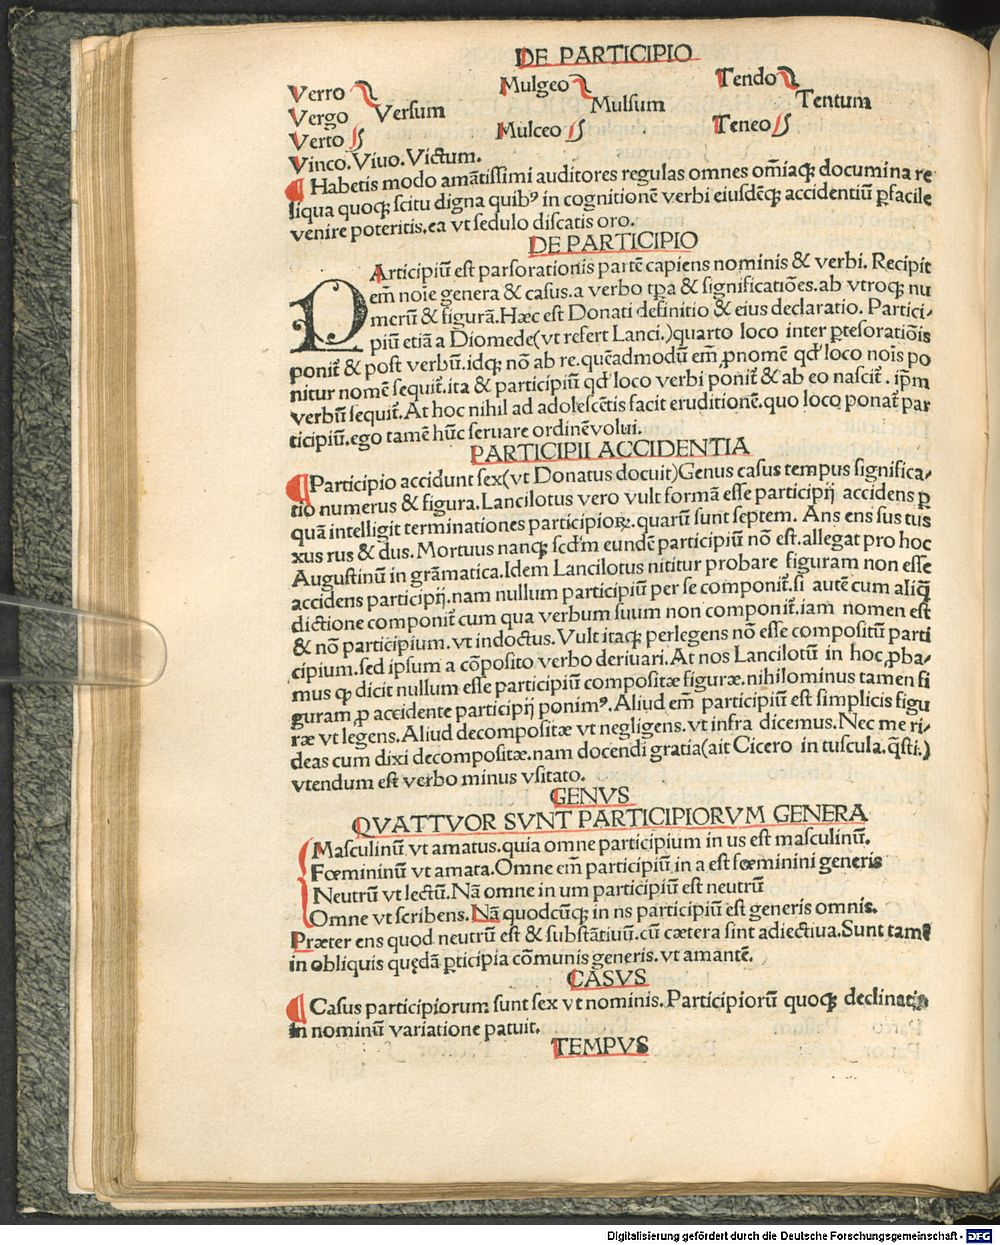 DE PARTICIPIO
Verro Mulgeo Tendo
Vergo Versum Mulsum Tentum
Verto Mulceo Teneo
Vinco. Viuo. Victum.
¶ Habetis modo amãtissimi auditores regulas omnes om̃iaq; documina re
liqua quoq; scitu digna quibꝰ in cognitionẽ verbi eiusdẽq; accidentiũ ꝑfacile
venire poteritis. ea vt sedulo discatis oro.
DE PARTICIPIO
PArticipiũ est parsorationis partẽ capiens nominis & verbi. Recipit
em̃ noĩe genera & casus. a verbo tꝑa & significatiões. ab vtroq; nu
merũ & figurã. Hæc est Donati definitio & eius declaratio. Partici-
piũ etiã a Diomede (vt refert Lanci.) quarto loco inter ꝑtesoratiõis
ponit̃ & post verbũ. idq; nõ ab re. quẽadmodũ em̃ ꝓnomẽ qđ loco nois po
nitur nomẽ sequit̃. ita & participiũ qđ loco verbi ponit̃ & ab eo nascit̃. ip̃m
verbũ sequit̃. At hoc nihil ad adolescẽtis facit eruditionẽ. quo loco ponat̃ par
ticipiũ. ego tamẽ hũc seruare ordinẽ volui.
PARTICIPII ACCIDENTIA
¶ Participio accidunt sex (vt Donatus docuit) Genus casus tempus significa-
tio numerus & figura. Lancilotus vero vult formã esse participij accidens ꝑ
quã intelligit terminationes participioꝝ. quarũ sunt septem. Ans ens sus tus
xus rus & dus. Mortuus nanq; scd'm eundẽ participiũ nõ est. allegat pro hoc
Augustinũ in grãmatica. Idem Lancilotus nititur probare figuram non esse
accidens participij. nam nullum participiũ per se componit̃. si autẽ cum aliq̃
dictione componit̃ cum qua verbum suum non componit̃. iam nomen est
& nõ participium. vt indoctus. Vult itaq; perlegens nõ esse compositũ parti
cipium. sed ipsum a cõposito verbo deriuari. At nos Lancilotũ in hoc ꝓba-
mus qꝫ dicit nullum esse participiũ compositæ figuræ. nihilominus tamen fi
guram ꝓ accidente participij ponimꝰ. Aliud em̃ participiũ est simplicis figu
ræ vt legens. Aliud decompositæ vt negligens. vt infra dicemus. Nec me ri-
deas cum dixi decompositæ. nam docendi gratia (ait Cicero in tuscula. q̃sti.)
vtendum est verbo minus vsitato.
GENVS
QVATTVOR SVNT PARTICIPIORVM GENERA
Masculinũ vt amatus. quia omne participium in us est masculinũ.
Fœmininũ vt amata. Omne em̃ participiũ in a est fœminini generis
Neutrũ vt lectũ. Nã omne in um participiũ est neutrũ
Omne vt scribens. Nã quodcũq; in ns participiũ est generis omnis.
Præter ens quod neutrũ est & substãtiuũ. cũ cætera sint adiectiua. Sunt tamẽ
in obliquis quędã ꝑticipia cõmunis generis. vt amantẽ.
CASVS
¶ Casus participiorum sunt sex vt nominis. Participiorũ quoq; declinatio
in nominũ variatione patuit.
TEMPVS
Digitalisierung gefördert durch die Deutsche Forschungsgemeinschaft - DFG